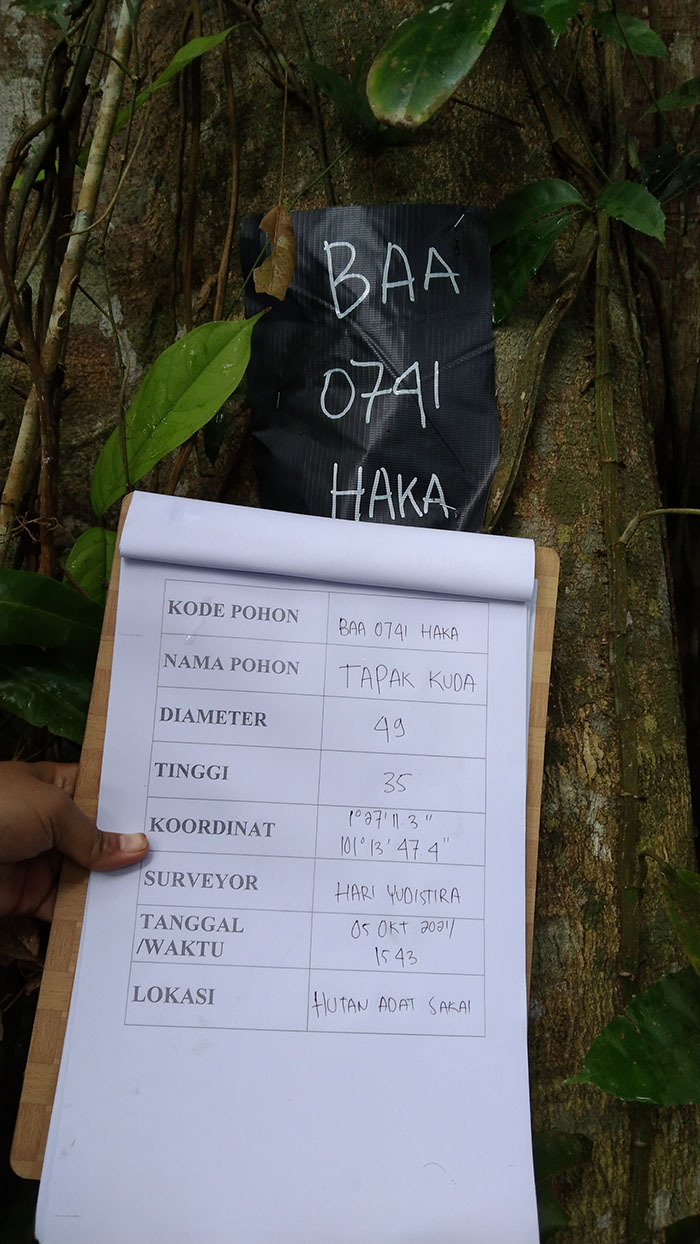 BAA
0741
HAKA
KODE POHON
BAA 0741 HAKA
NAMA POHON
TAPAK KUDA
DIAMETER
49
TINGGI
35
KOORDINAT
1°27'11.3"
101°13'47.4"
SURVEYOR
HARI YUDISTIRA
TANGGAL
/WAKTU
05 OKT 2021/
1543
LOKASI
HUTAN ADAT SAKAI